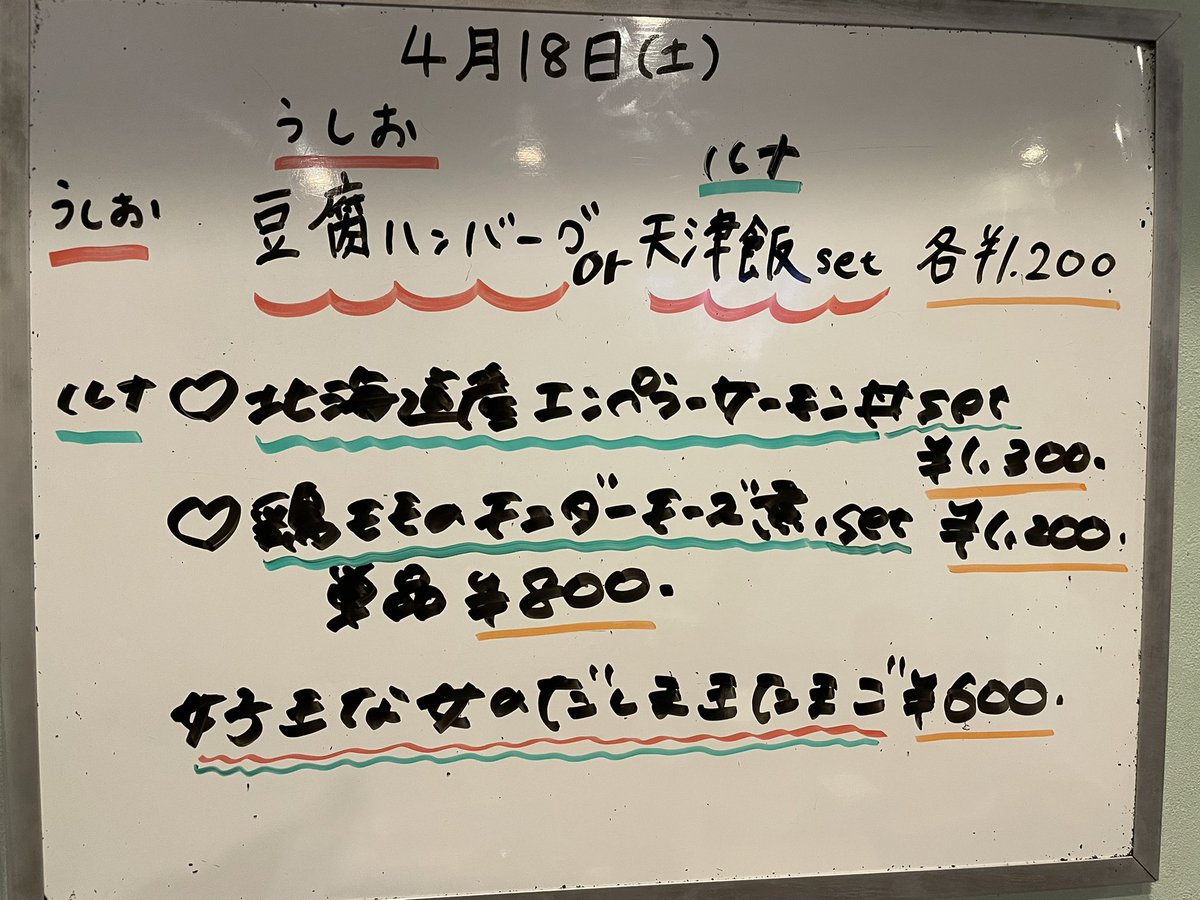 4月18日(土)
うしお
ルナ
うしお 豆腐ハンバーグ or 天津飯 set 各¥1.200
ルナ ♡北海道産エンペラーサーモン丼set
¥1,300.
♡鶏モモのモンダーモーズ煮.set ¥1,200.
単品 ¥800.
好きな女のだしまきたまご ¥600.